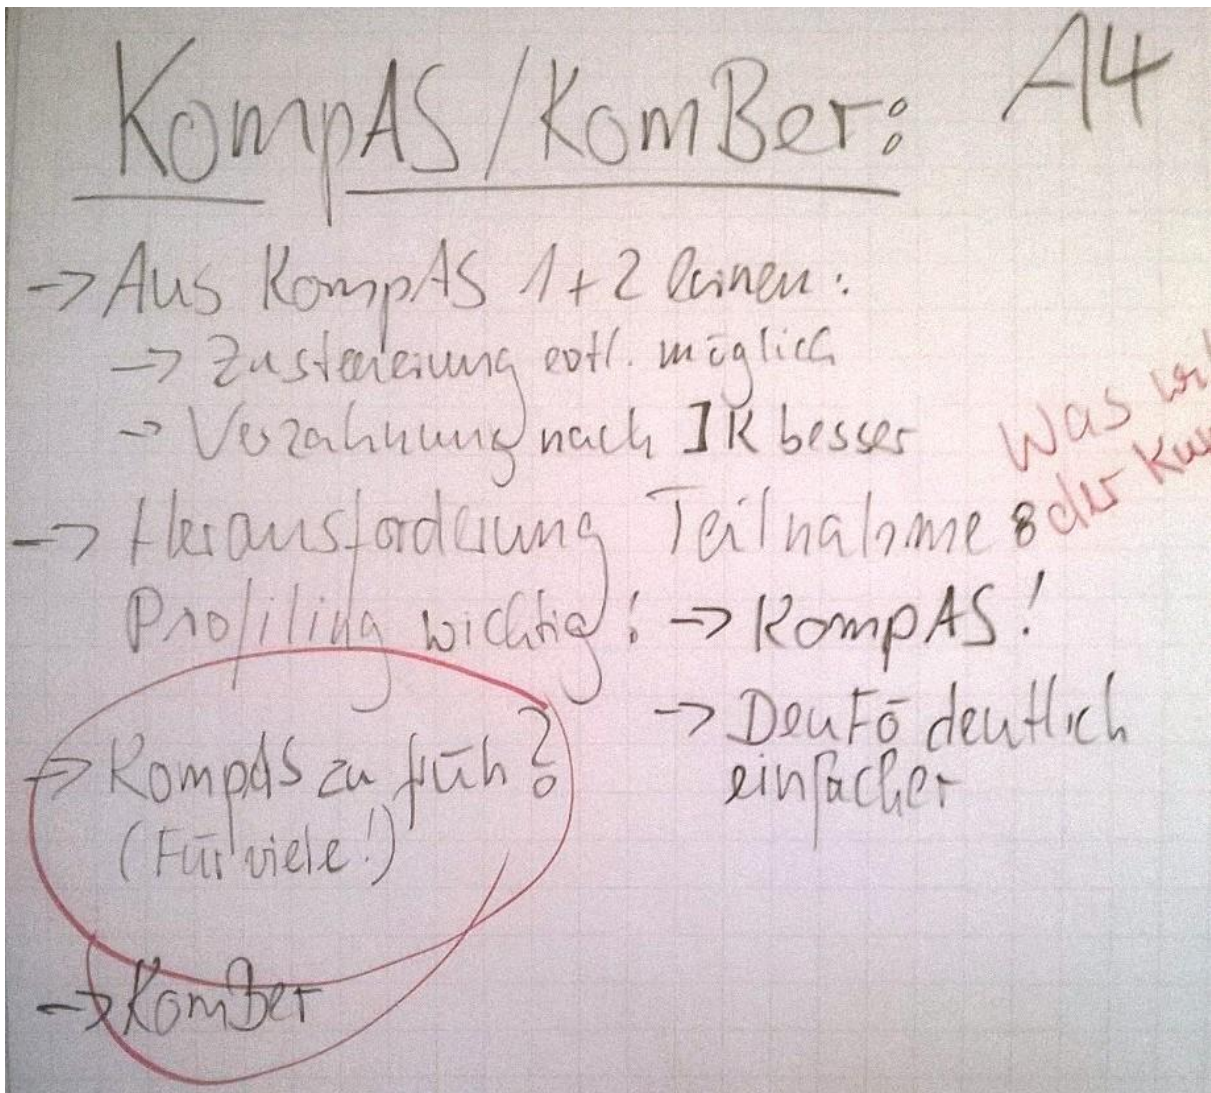 KompAS/KomBer: A4
-> Aus KompAS 1+2 lernen:
-> Zusteuerung evtl. möglich
-> Verzahnung nach IK besser
Was
der
-> Herausforderung Teilnahme:
Profiling wichtig! -> KompAS!
-> DeuFö deutlich
einfacher
-> KompAS zu früh?
(Für viele!)
-> KomBer